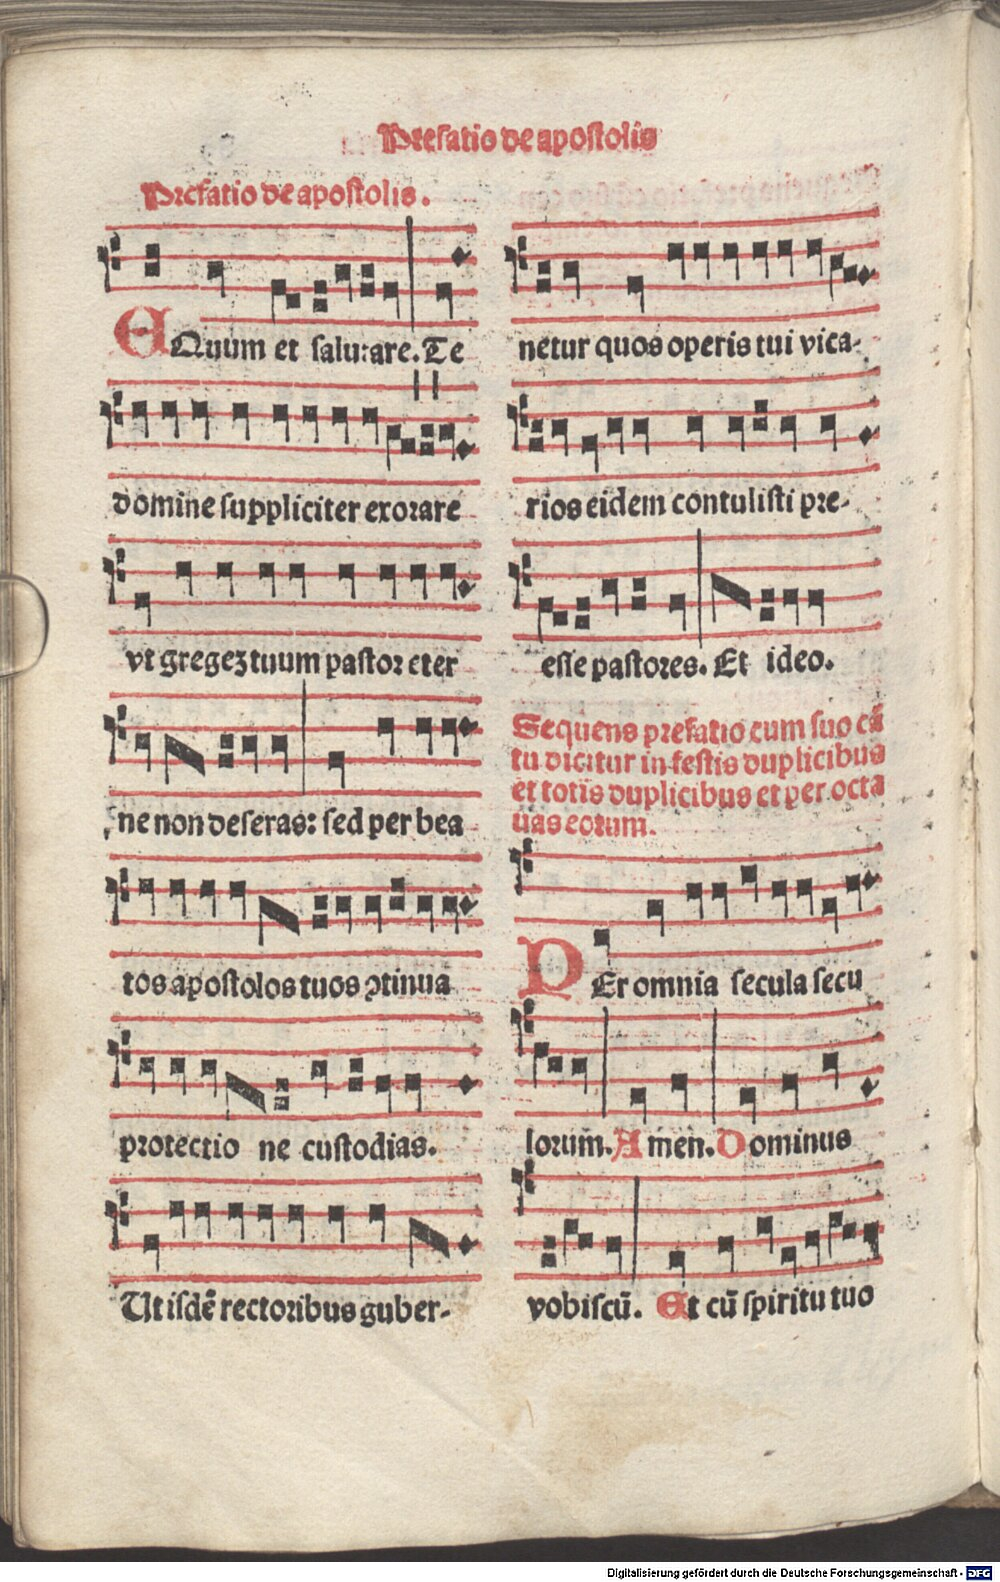 Prefatio de apostolis
Prefatio de apostolis.
EQuum et salutare. Te
domine suppliciter exorare
vt gregeʒ tuum pastor eter
ne non deseras: sed per bea
tos apostolos tuos ꝯtinua
protectio ne custodias.
Ut isdē rectoribus guber-
netur quos operis tui vica-
rios eidem contulisti pre-
esse pastores. Et ideo.
Sequens prefatio cum suo cā
tu dicitur in festis duplicibus
et totis duplicibus et per octa
uas eorum.
PEr omnia secula secu
lorum. Amen. Dominus
vobiscū. Et cū spiritu tuo
Digitalisierung gefördert durch die Deutsche Forschungsgemeinschaft - DFG